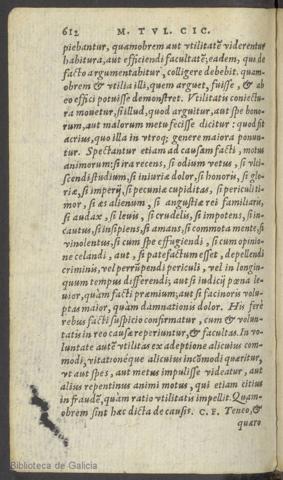 612 M. TVL. CIC.
piebantur, quamobrem aut vtilitatē viderentur
habitura, aut efficiendi facultatē; eadem, qui de
facto argumentabitur, colligere debebit. quam-
obrem & vtilia illi, quem arguet, fuisse, & ab
eo effici potuisse demonstret. Vtilitatis coniectu-
ra mouetur, si illud, quod arguitur, aut spe bono-
rum, aut malorum metu fecisse dicitur: quod fit
acrius, quo illa in vtroq; genere maiora ponun-
tur. Spectantur etiam ad causam facti, motus
animorum: si ira recens, si odium vetus, si vlci-
scendi studium, si iniuriæ dolor, si honoris, si glo-
riæ, si imperij, si pecuniæ cupiditas, si periculi ti-
mor, si æs alienum, si angustiæ rei familiaris,
si audax, si leuis, si crudelis, si impotens, si in-
cautus, si insipiens, si amans, si commota mente, si
vinolentus, si cum spe effugiendi, si cum opinio-
ne celandi, aut, si patefactum esset, depellendi
criminis, vel perrūpendi periculi, vel in longin-
quum tempus differendi; aut si iudicij pœna le-
uior, quàm facti præmium; aut si facinoris volu-
ptas maior, quàm damnationis dolor. His ferè
rebus facti suspicio confirmatur, cum & volun-
tatis in reo causæ reperiuntur, & facultas. In vo-
luntate autē vtilitas ex adeptione alicuius com-
modi, vitationéque alicuius incōmodi quæritur,
vt aut spes, aut metus impulisse videatur, aut
alius repentinus animi motus, qui etiam citius
in fraudē, quàm ratio vtilitatis impellit. Quam-
obrem sint hæc dicta de causis. C. F. Teneo, &
quæro
Biblioteca de Galicia